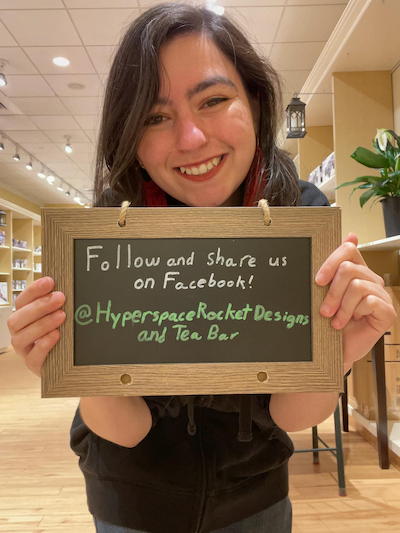 Follow and share us
on Facebook!
@HyperspaceRocketDesigns
and Tea Bar